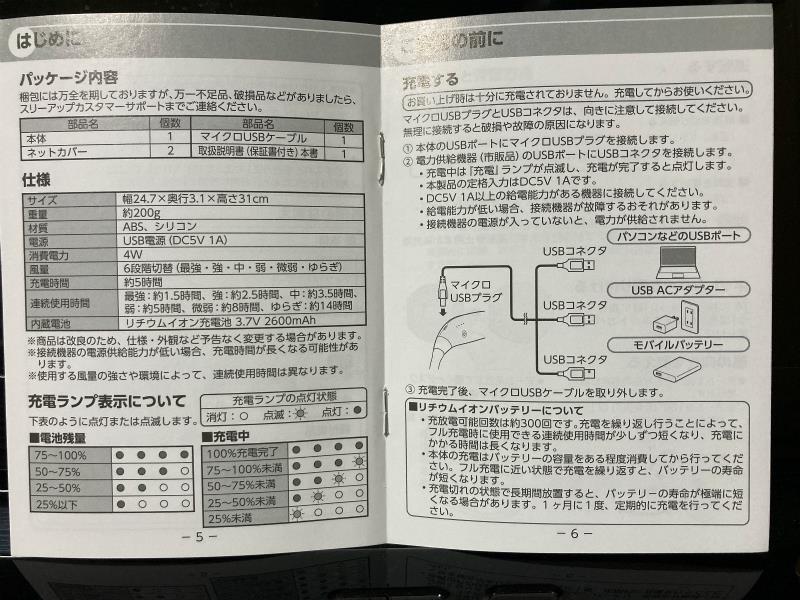 はじめに
パッケージ内容
梱包には万全を期しておりますが、万一不足品、破損品などがありましたら、
スリーアップカスタマーサポートまでご連絡ください。
部品名 個数 部品名 個数
本体 1 マイクロUSBケーブル 1
ネットカバー 2 取扱説明書(保証書付き)本書 1
仕様
サイズ 幅24.7×奥行3.1×高さ31cm
重量 約200g
材質 ABS、シリコン
電源 USB電源(DC5V 1A)
消費電力 4W
風量 6段階切替(最強・強・中・弱・微弱・ゆらぎ)
充電時間 約5時間
連続使用時間 最強:約1.5時間、強:約2.5時間、中:約3.5時間、
弱:約5時間、微弱:約8時間、ゆらぎ:約14時間
内蔵電池 リチウムイオン充電池 3.7V 2600mAh
※商品は改良のため、仕様・外観など予告なく変更する場合があります。
※接続機器の電源供給能力が低い場合、充電時間が長くなる可能性があ
ります。
※使用する風量の強さや環境によって、連続使用時間は異なります。
充電ランプ表示について
下表のように点灯または点滅します。
充電ランプの点灯状態
消灯:○ 点滅: 点灯:●
■電池残量
75~100% ● ● ● ●
50~75% ● ● ● ○
25~50% ● ● ○ ○
25%以下 ● ○ ○ ○
■充電中
100%充電完了 ● ● ● ●
75~100%未満 ● ● ●
50~75%未満 ● ● ○
25~50%未満 ● ○ ○
25%未満 ○ ○ ○
- 5 -
の前に
充電する
お買い上げ時は十分に充電されておりません。充電してからお使いください。
マイクロUSBプラグとUSBコネクタは、向きに注意して接続してください。
無理に接続すると破損や故障の原因になります。
① 本体のUSBポートにマイクロUSBプラグを接続します。
② 電力供給機器(市販品)のUSBポートにUSBコネクタを接続します。
・充電中は「充電」ランプが点滅し、充電が完了すると点灯します。
・本製品の定格入力はDC5V 1Aです。
・DC5V 1A以上の給電能力がある機器に接続してください。
・給電能力が低い場合、接続機器が故障するおそれがあります。
・接続機器の電源が入っていないと、電力が供給されません。
パソコンなどのUSBポート
USBコネクタ
マイクロ
USBプラグ
USB ACアダプター
USBコネクタ
モバイルバッテリー
USBコネクタ
③ 充電完了後、マイクロUSBケーブルを取り外します。
■リチウムイオンバッテリーについて
・充放電可能回数は約300回です。充電を繰り返し行うことによって、
フル充電時に使用できる連続使用時間が少しずつ短くなり、充電に
かかる時間は長くなります。
・本体の充電はバッテリーの容量をある程度消費してから行ってくだ
さい。フル充電に近い状態で充電を繰り返すと、バッテリーの寿命
が短くなります。
・充電切れの状態で長期間放置すると、バッテリーの寿命が極端に短
くなる場合があります。1ヶ月に1度、定期的に充電を行ってくだ
さい。
- 6 -